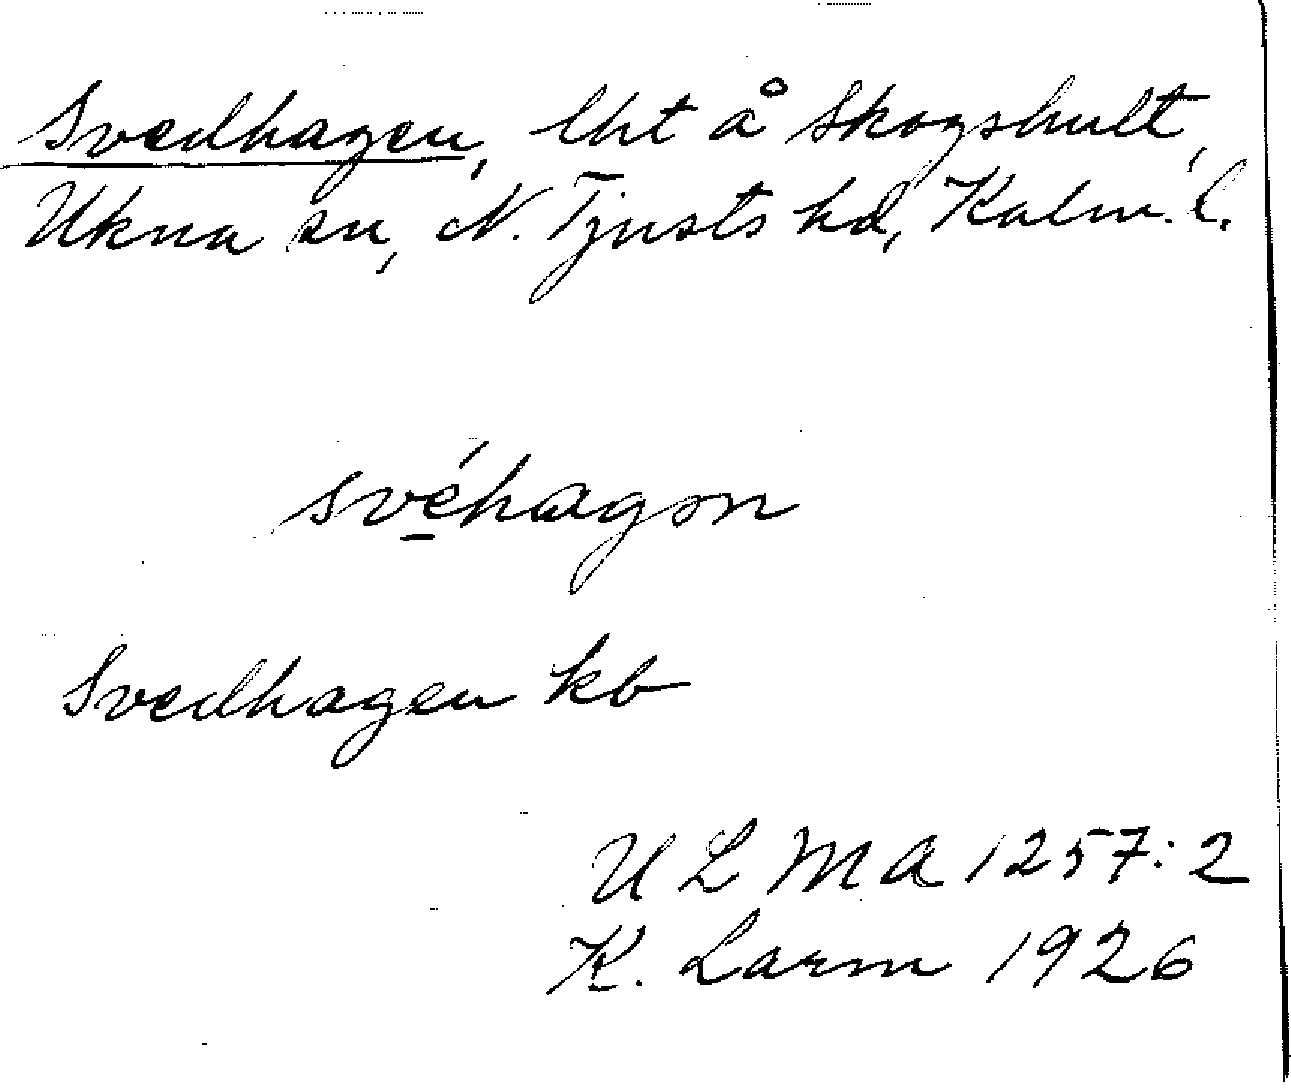 Svedhagen, lht å Skogshult,
Ukna sn, N. Tjusts hd, Kalm. l.
svéhagən
Svedhagen kb
ULMA 1257:2
K. Larm 1926